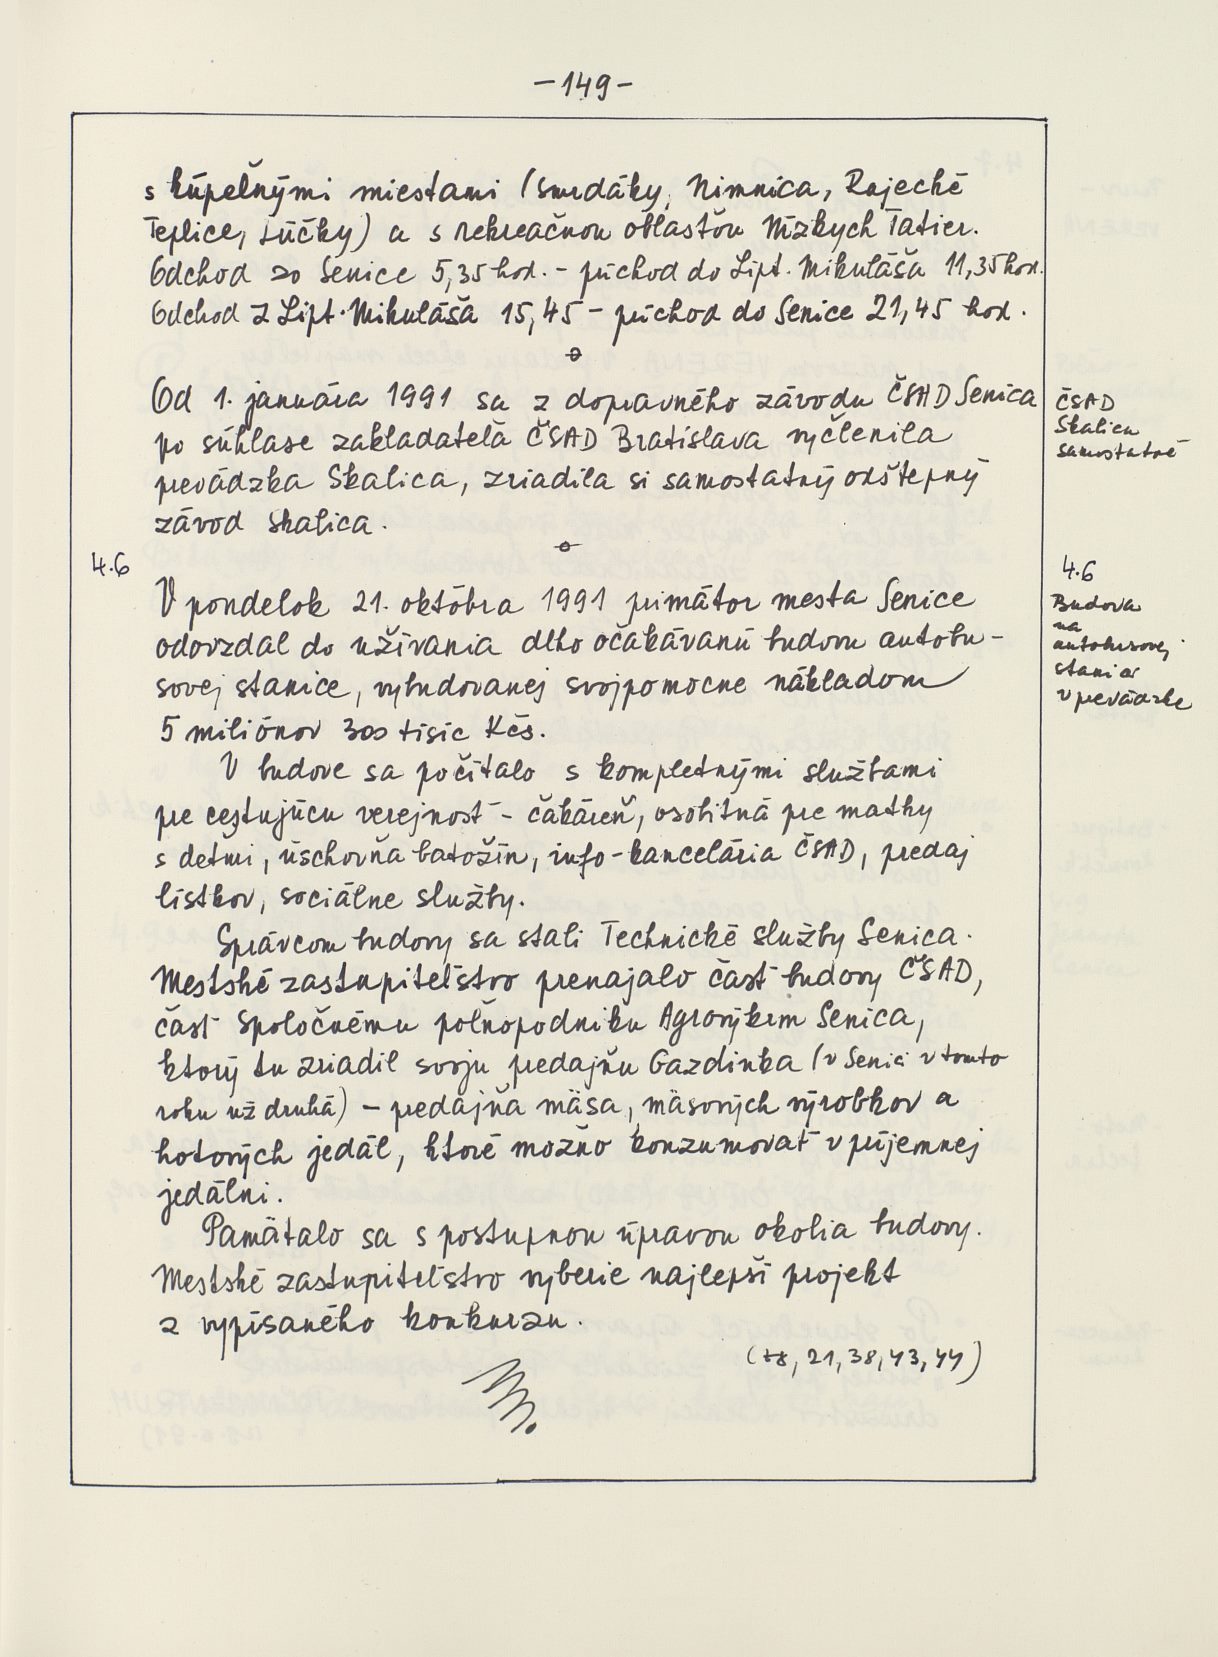 -149-
s kúpeľnými miestami (Smrdáky, Nimnica, Rajecké
Teplice, Lúčky) a s rekreačnou oblasťou Nízkych Tatier.
Odchod zo Senice 5,35 hod. - príchod do Lipt. Mikuláša 11,35 hod.
Odchod z Lipt. Mikuláša 15,45 - príchod do Senice 21,45 hod.
Od 1. januára 1991 sa z dopravného závodu ČSAD Senica
po súhlase zakladateľa ČSAD Bratislava vyčlenila
prevádzka Skalica, zriadila si samostatný odštepný
závod Skalica.
ČSAD
Skalica
samostatné
4.6
V pondelok 21. októbra 1991 primátor mesta Senice
odovzdal do užívania dlho očakávanú budovu autobu-
sovej stanice, vybudovanej svojpomocne nákladom
5 miliónov 300 tisíc Kčs.
4.6
Budova
na
autobusovej
stanici
v prevádzke
V budove sa počítalo s kompletnými službami
pre cestujúcu verejnosť - čakáreň, osobitná pre matky
s deťmi, úschovňa batožín, info-kancelária ČSAD, predaj
lístkov, sociálne služby.
Správcom budovy sa stali Technické služby Senica.
Mestské zastupiteľstvo prenajalo časť budovy ČSAD,
časť Spoločnému poľnopodniku Agrovýkrm Senica,
ktorý tu zriadil svoju predajňu Gazdinka (v Senici v tomto
roku už druhá) - predajňa mäsa, mäsových výrobkov a
hotových jedál, ktoré možno konzumovať v príjemnej
jedálni.
Pamätalo sa s postupnou úpravou okolia budovy.
Mestské zastupiteľstvo vyberie najlepší projekt
z vypísaného konkurzu.
21, 38, 43, 44)